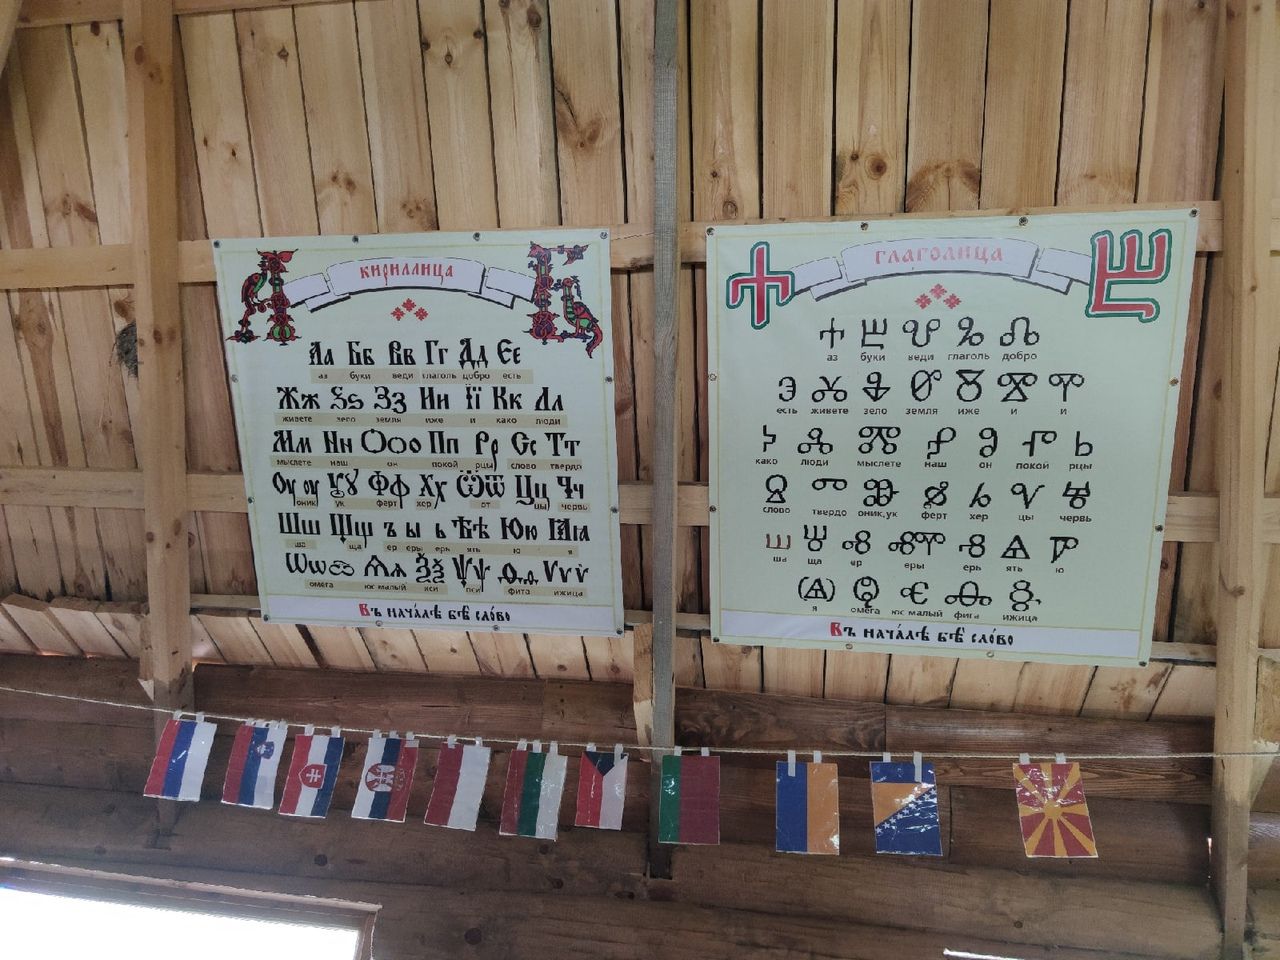 КИРИЛЛИЦА
Аа Бб Вв Гг Дд Єє
аз буки веди глаголь добро есть
Жж Ѕѕ Зз Ии Її Кк Лл
живете зело земля иже и како люди
Мм Нн Оо Пп Рр Сс Тт
мыслете наш он покой рцы слово твердо
Ѹѹ Ꙋꙋ Фф Хх Ѿѿ Цц Чч
оник ук ферт хер от цы червь
Шш Щщ ъ ы ь Ѣѣ Юю Ꙗꙗ
ша ща ер еры ерь ять ю я
Ѡѡ Ѧѧ Ѯѯ Ѱѱ Ѳѳ Ѵѵ
омега юс малый кси пси фита ижица
Въ нача́лѣ бѣ̀ сло́во
ГЛАГОЛИЦА
Ⰰ Ⰱ Ⰲ Ⰳ Ⰴ
аз буки веди глаголь добро
Ⰵ Ⰶ Ⰷ Ⰸ Ⰹ Ⰺ Ⰻ
есть живете зело земля иже и и
Ⰽ Ⰾ Ⰿ Ⱀ Ⱁ Ⱂ Ⱃ
како люди мыслете наш он покой рцы
Ⱄ Ⱅ Ⱆ Ⱇ Ⱈ Ⱌ Ⱍ
слово твердо оник,ук ферт хер цы червь
Ⱎ Ⱋ Ⱏ ⰟⰊ Ⱐ Ⱑ Ⱓ
ша ща ер еры ерь ять ю
(Ⱑ) Ⱉ Ⱔ Ⱚ Ⱛ
я омега юс малый фита ижица
Въ нача́лѣ бѣ̀ сло́во